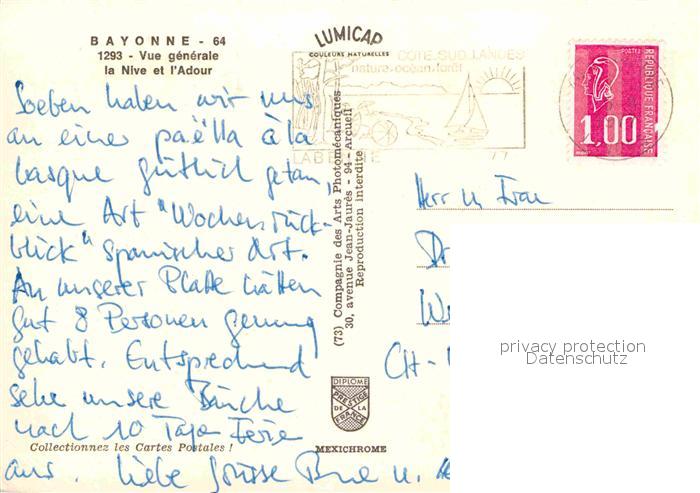 BAYONNE - 64
1293 - Vue générale
la Nive et l'Adour
LUMICAP
COULEURS NATURELLES
COTE SUD LANDES
nature-océan-forêt
LAB
POSTES
REPUBLIQUE FRANÇAISE
1,00
Soeben haben wir uns
an einer paëlla à la
basque gütlich getan,
eine Art "Wochenrück-
blick" spanischer Art.
An unserer Platte hätten
gut 8 Personen genug
gehabt. Entsprechend
sehe unsere Bäuche
nach 10 Tage Ferie
aus. Liebe Grüsse u.
(73) Compagnie des Arts Photomécaniques
30, avenue Jean-Jaurès - 94 - Arcueil
Reproduction interdite
Herr u Frau
CH -
privacy protection
Datenschutz
DIPLOME
PRESTIGE
DE LA
FRANCE
MEXICHROME
Collectionnez les Cartes Postales !